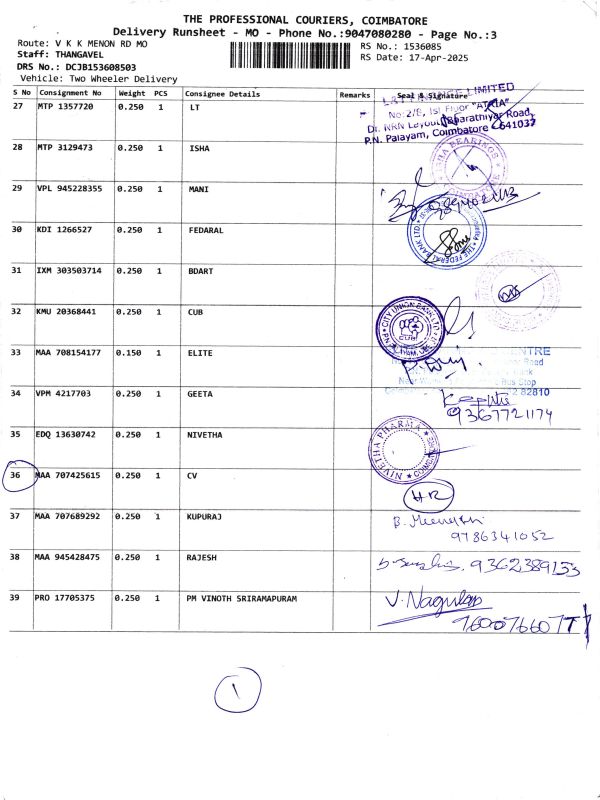 THE PROFESSIONAL COURIERS, COIMBATORE
Delivery Runsheet - MO - Phone No.:9047080280 - Page No.:3
Route: V K K MENON RD MO
RS No.: 1536085
Staff: THANGAVEL
RS Date: 17-Apr-2025
DRS No.: DCJB153608503
Vehicle: Two Wheeler Delivery
S No Consignment No Weight PCS Consignee Details Remarks Seal & Signature
27 MTP 1357720 0.250 1 LT
LIMITED
No:2/8, Ist Floor "ATRIA"
Dr. NRN Layout, Bharathiyar Road,
P.N. Palayam, Coimbatore - 641037
28 MTP 3129473 0.250 1 ISHA
BEARINGS
29 VPL 945228355 0.250 1 MANI
30 KDI 1266527 0.250 1 FEDARAL
THE FEDERAL BANK LTD
31 IXM 303503714 0.250 1 BDART
32 KMU 20368441 0.250 1 CUB
CITY UNION BANK LTD
CUB
33 MAA 708154177 0.150 1 ELITE
CENTRE
Road
Bus Stop
82810
34 VPM 4217703 0.250 1 GEETA
9367721174
35 EDQ 13630742 0.250 1 NIVETHA
NIVETHA PHARMA
36 MAA 707425615 0.250 1 CV
HR
37 MAA 707689292 0.250 1 KUPURAJ
B. Meenakshi
9786341052
38 MAA 945428475 0.250 1 RAJESH
9362389133
39 PRO 17705375 0.250 1 PM VINOTH SRIRAMAPURAM
V. Nagulan
7600766077
1